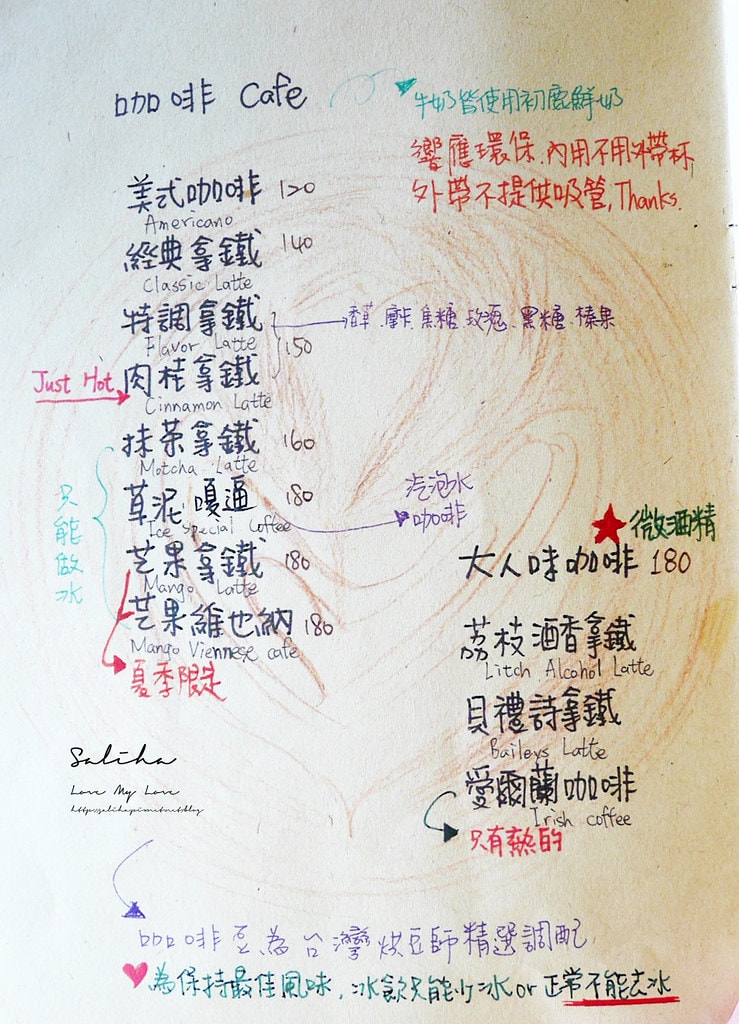 咖啡 Cafe
牛奶皆使用初鹿鮮奶
響應環保.內用不用外帶杯,
外帶不提供吸管,Thanks.
美式咖啡 120
Americano
經典拿鐵 140
Classic Latte
特調拿鐵
Flavor Latte
香草.摩卡.焦糖.玫瑰.黑糖.榛果
150
Just Hot
肉桂拿鐵
Cinnamon Latte
抹茶拿鐵 160
Motcha Latte
只能做冰
草泥嘎逼 180
Ice special Coffee
汽泡水
咖啡
芒果拿鐵 180
Mango Latte
芒果維也納 180
Mango Viennese cafe
夏季限定
微酒精
大人味咖啡 180
荔枝酒香拿鐵
Litch Alcohol Latte
貝禮詩拿鐵
Baileys Latte
愛爾蘭咖啡
Irish coffee
只有熱的
Saliha
Love My Love
http://saliha.pixnet.net/blog
咖啡豆為台灣烘豆師精選調配
為保持最佳風味,冰飲只能少冰 or 正常不能去冰